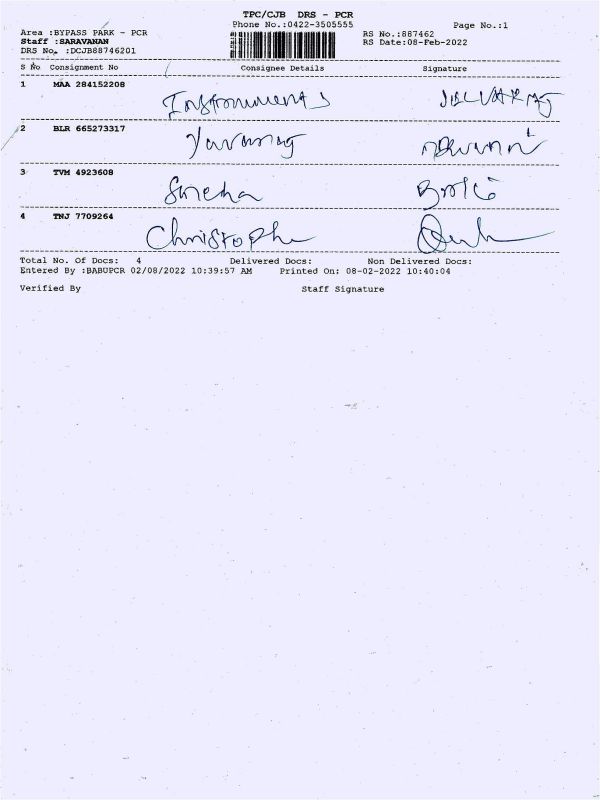 TPC/CJB DRS - PCR
Phone No.:0422-3505555 Page No.:1
Area :BYPASS PARK - PCR RS No.:887462
Staff :SARAVANAN RS Date:08-Feb-2022
DRS No. :DCJB88746201
S No Consignment No Consignee Details Signature
1 MAA 284152208 Instruments
2 BLR 665273317
3 TVM 4923608 Sneha
4 TNJ 7709264 Christophe
Total No. Of Docs: 4 Delivered Docs: Non Delivered Docs:
Entered By :BABUPCR 02/08/2022 10:39:57 AM Printed On: 08-02-2022 10:40:04
Verified By Staff Signature